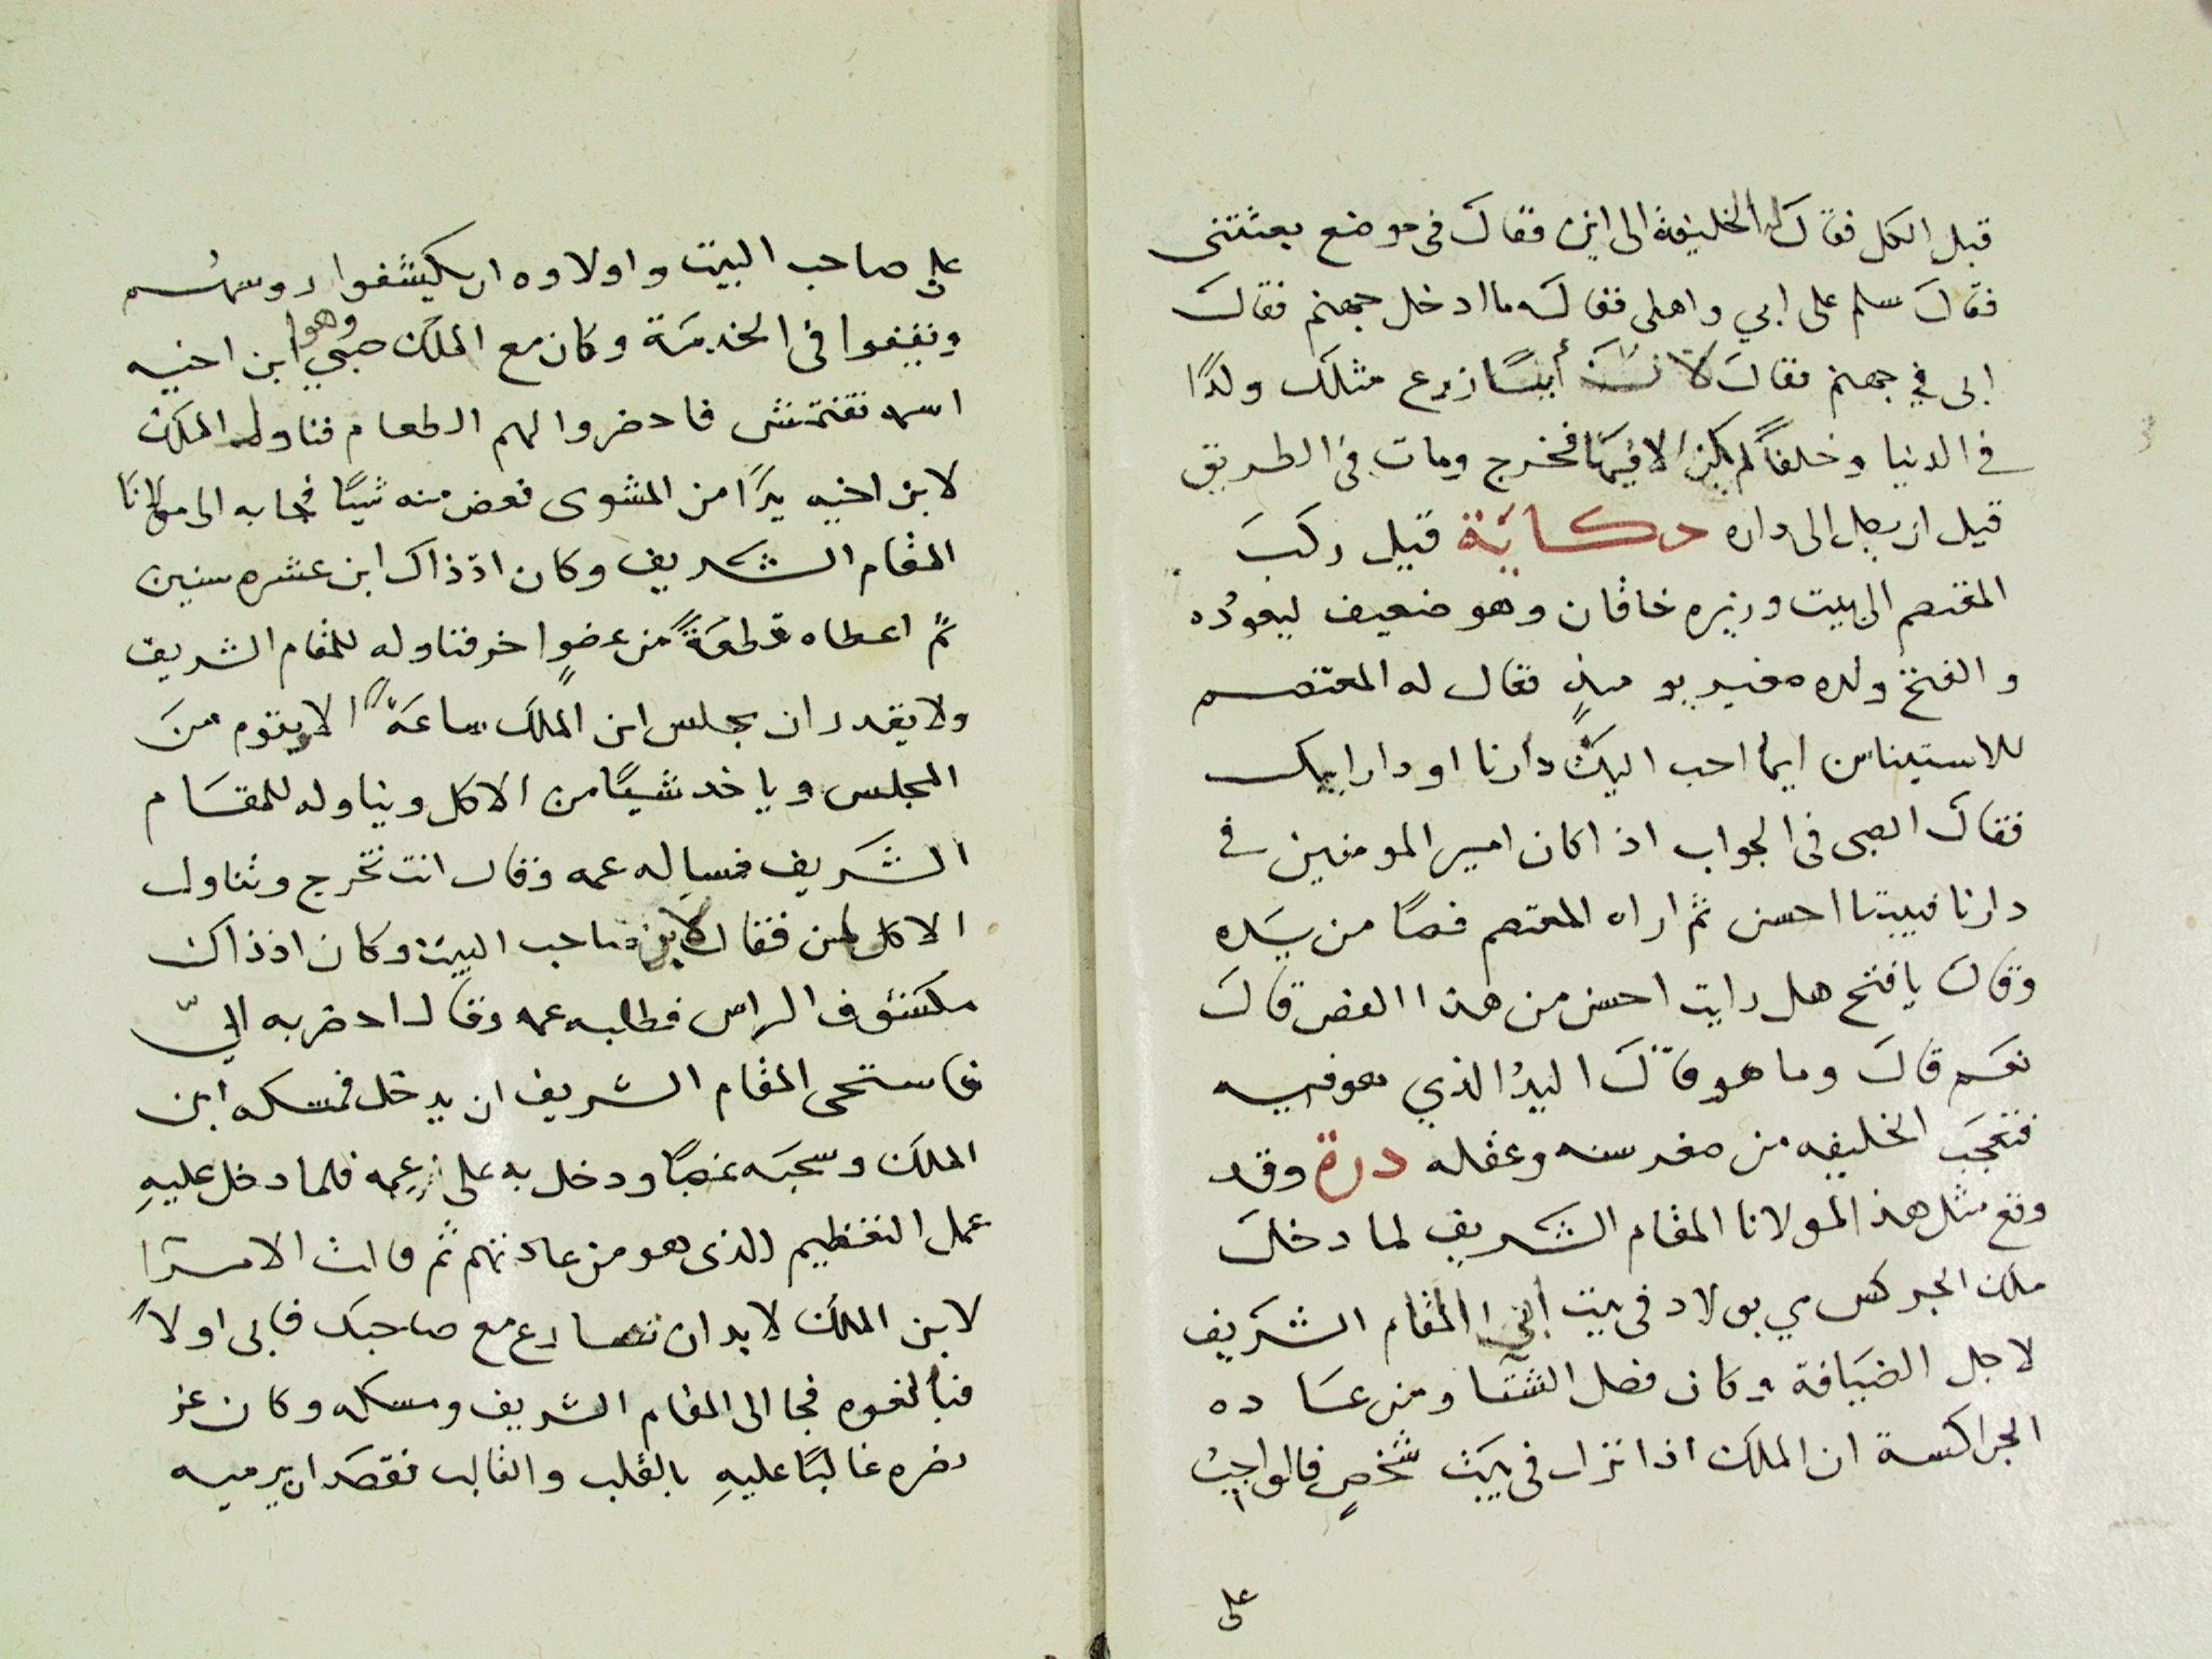 قبل الكل فقال له الخليفة الى اين فقال في موضع بعثتني
فقال سلم على ابي واهلي فقال له ما ادخل جهنم فقال
ابي في جهنم فقال لا نك أيسًا زرع مثلك ولدًا
في الدنيا وخلفاً لم يكن الا فيها فخرج ومات في الطريق
قيل ان يصل الى داره حكاية قيل ركب
المعتصم الى بيت وزيره خاقان وهو ضعيف ليعوده
والفتح ولده صغير يوميذٍ فقال له المعتصم
للاستيناس ايما احب اليك دارنا او دار ابيك
فقال الصبي في الجواب اذا كان امير المومنين في
دارنا فبيتنا احسن ثم اراه المعتصم فصًا من يده
وقال يا فتح هل رايت احسن من هذا الفص قال
نعم قال وما هو قال اليدُ الذي هو فيه
فتعجب الخليفه من صغر سنه وعقله درة وقد
وقع مثل هذا لمولانا المقام الشريف لما دخل
ملك الجركس مي بولاد في بيت ابي المقام الشريف
لاجل الضيافة وكان فصل الشتا ومن عاده
الجراكسة ان الملك اذا نزل في بيت شخصٍ فالواجبُ
على
على صاحب البيت واولاده ان يكشفوا روسهم
ويقفوا في الخدمة وكان مع الملك صبي وهو ابن اخيه
اسمه تقتمش فاحضروا لهم الطعام فناوله الملك
لابن اخيه يدًا من المشوى فعض منه شيًا فجا به الى مولانا
المقام الشريف وكان اذ ذاك ابن عشره سنين
ثم اعطاه قطعةً من عضوٍ اخر فناوله للمقام الشريف
ولا يقدر ان يجلس ابن الملك ساعةً الا ويقوم من
المجلس وياخذ شيًا من الاكل ويناوله للمقام
الشريف فساله عمه وقال انت تخرج وتناول
الاكل لمن فقال لابن صاحب البيت وكان اذ ذاك
مكشوف الراس فطلبه عمه وقال احضر به اليّ
فاستحى المقام الشريف ان يدخل فمسكه ابن
الملك وسحبه غصبًا ودخل به على عمه فلما دخل عليهِ
عمل التعظيم الذى هو من عادتهم ثم قالت الامرا
لابن الملك لابد ان تصارع مع صاحبك فابى اولاً
فبالغوه فجا الى المقام الشريف ومسكه وكان عز
نصره غالبًا عليهِ بالقلب والقالب فقصد ان يرميه